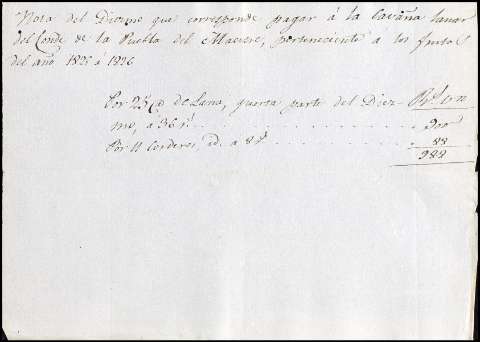 Nota del Diezmo que corresponde pagar á la Cavaña lanar
del Conde de la Puebla del Maestre, perteneciente á los frutos
del año 1825 a 1826
Por 25 @ de Lana, quarta parte del Diez- Rs. vn
mo, a 36 rs. . . . . . . . . . . . . 900
Por 11 Corderos, id. a 8 rs. . . . . . . . . . 88
988